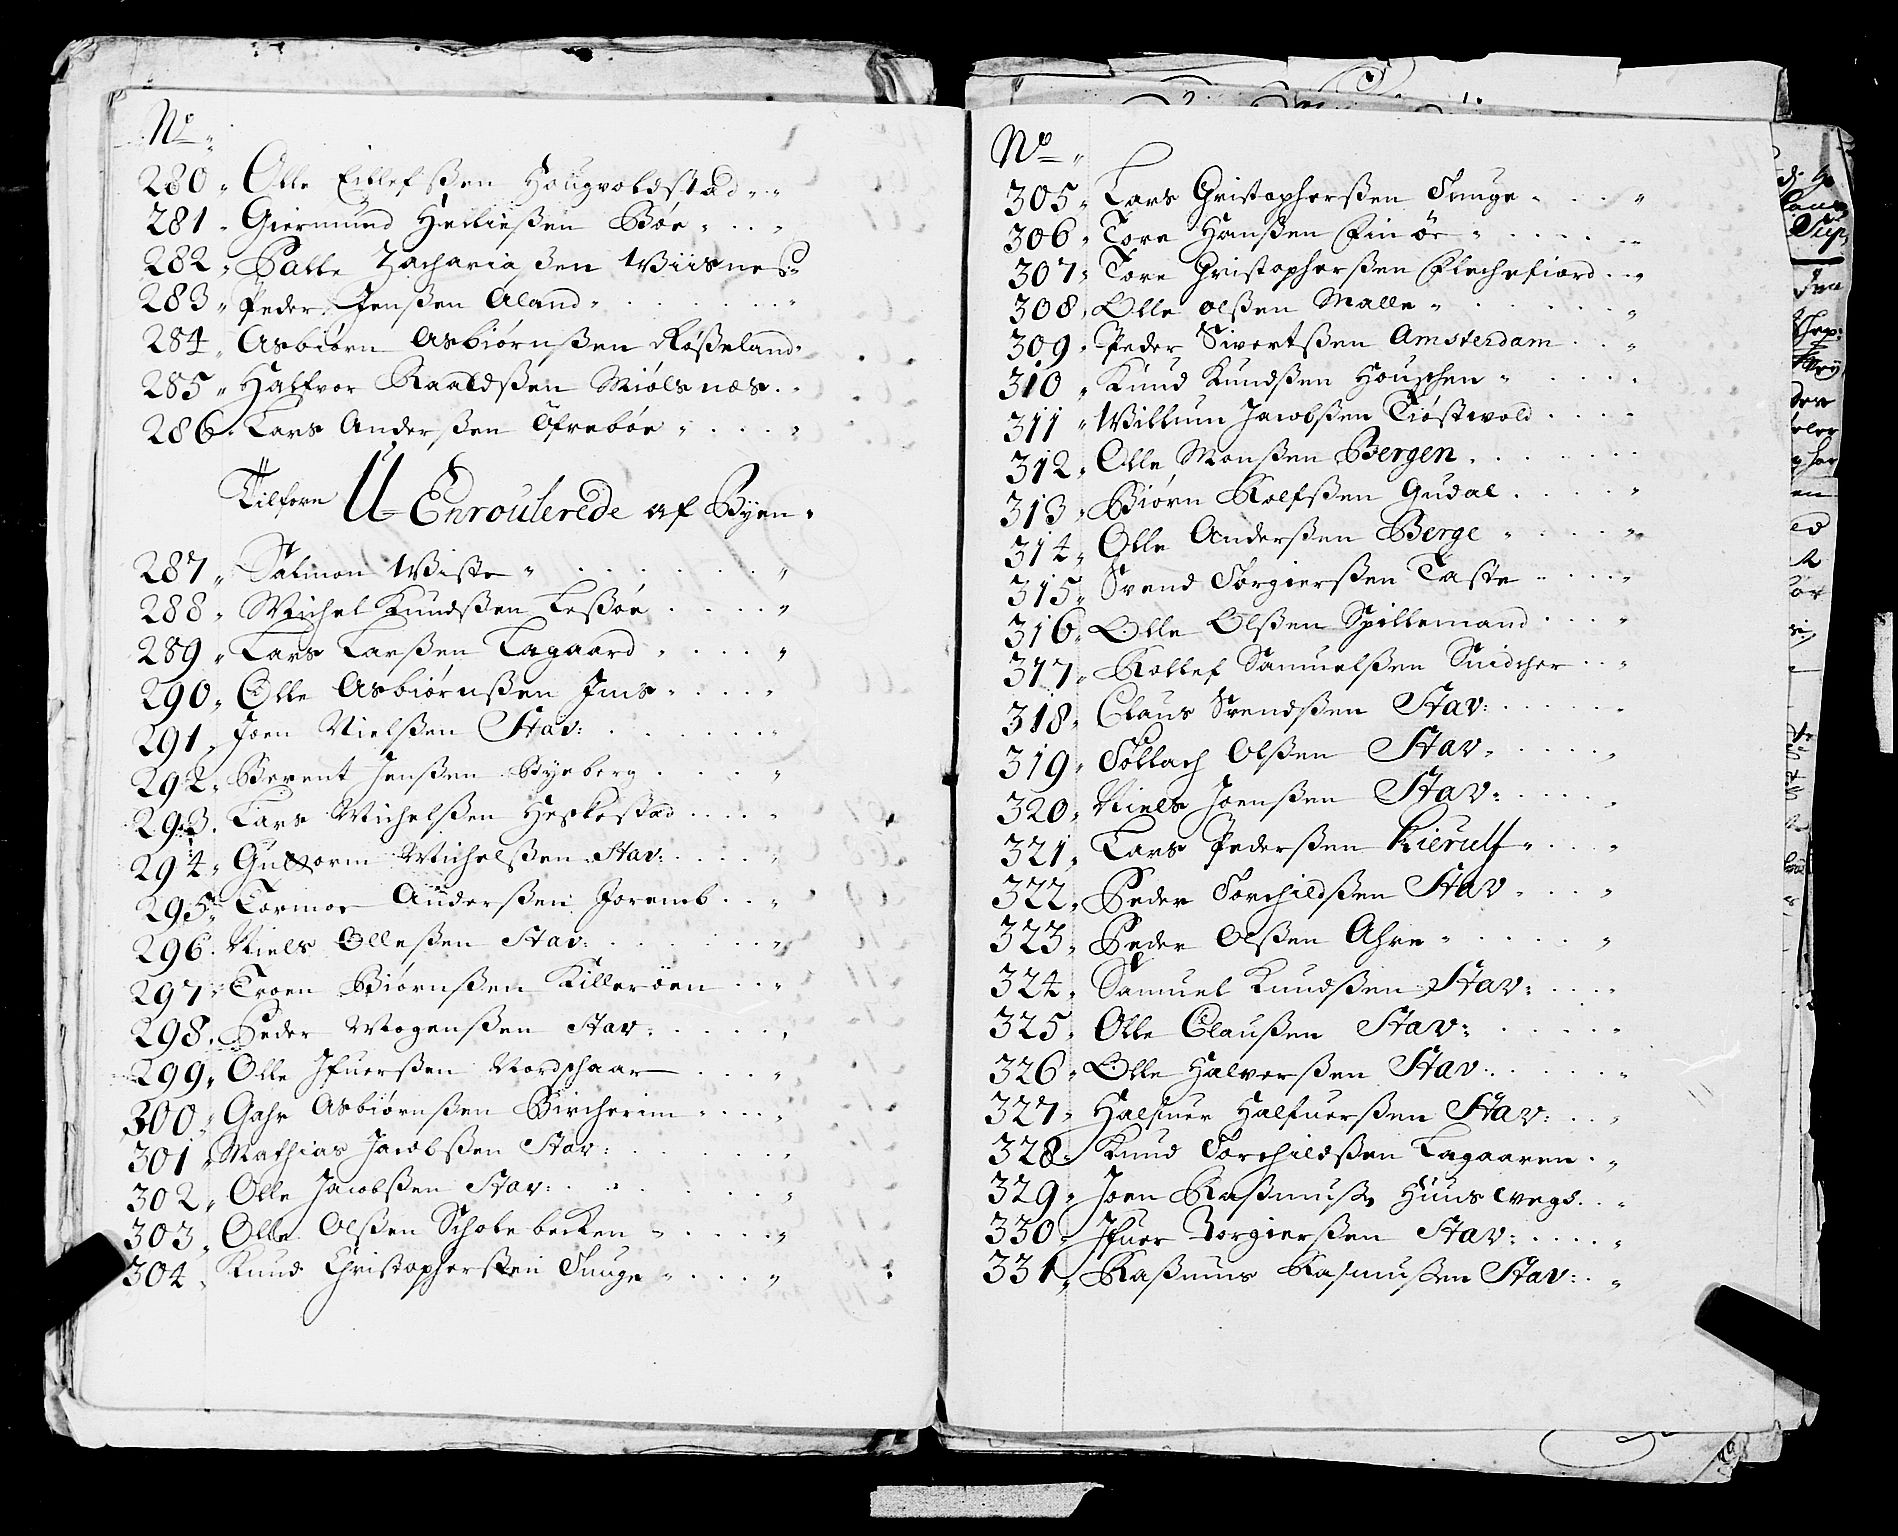 No
280 Olle Eillefsßen Hougvoldstad
281 Giermund Helließen Bøe
282 Palle Zachariaßen Wiisnes
283 Peder Jensßen Aland
284 Asbiørn Asbiørnsßen Roßeland
285 Halfvor Raaldsßen Miølsnæs
286 Lars Andersßen Ofrebøe
Tilforn U-Enroulerede af Byen
287 Salmon Wiste
288 Michel Knudsßen Leßøe
289 Lars Larsßen Lagaard
290 Olle Asbiørnsßen Ims
291 Joen Nielsßen Stav:
292 Berent Jensßen Byeberg
293 Lars Michelsßen Heskestad
294 Guttorm Michelsßen Stav:
295 Tormoe Andersßen Joremb
296 Niels Olleßen Stav:
297 Troen Biørnsßen Killerøen
298 Peder Mogensßen Stav:
299 Olle Ifuersßen Nordschaar
300 Gahr Asbiørnsßen Bircherim
301 Mathias Jacobsßen Stav:
302 Olle Jacobsßen Stav:
303 Olle Olsßen Scholebecken
304 Knud Christophersßen Tunge
No
305 Lars Christophersßen Tunge
306 Tore Hansßen Finöe
307 Tore Christophersßen Flechefiord
308 Olle Olsßen Malle
309 Peder Sivertsßen Amsterdam
310 Knud Knudsßen Houschen
311 Willum Jacobsßen Tiøstwold
312 Olle Monsßen Bergen
313 Biørn Rolfsßen Gudal
314 Olle Andersßen Berge
315 Svend Torgiersßen Taste
316 Olle Olsßen Spillemand
317 Rollef Samuelsßen Snidcher
318 Claus Svendsßen Stav:
319 Tollach Olsßen Stav
320 Niels Joensßen Stav:
321 Lars Pedersßen Kierulf
322 Peder Torchildsßen Stav
323 Peder Olsßen Ahre
324 Samuel Knudsßen Stav:
325 Olle Claußen Stav:
326 Olle Halversßen Stav:
327 Halfuer Halfuersßen Stav:
328 Knud Torchildsßen Lagaaren
329 Joen Raßmusß Huuswegs
330 Ifuer Torgiersßen Stav:
331 Raßmus Rasmusßen Stav: